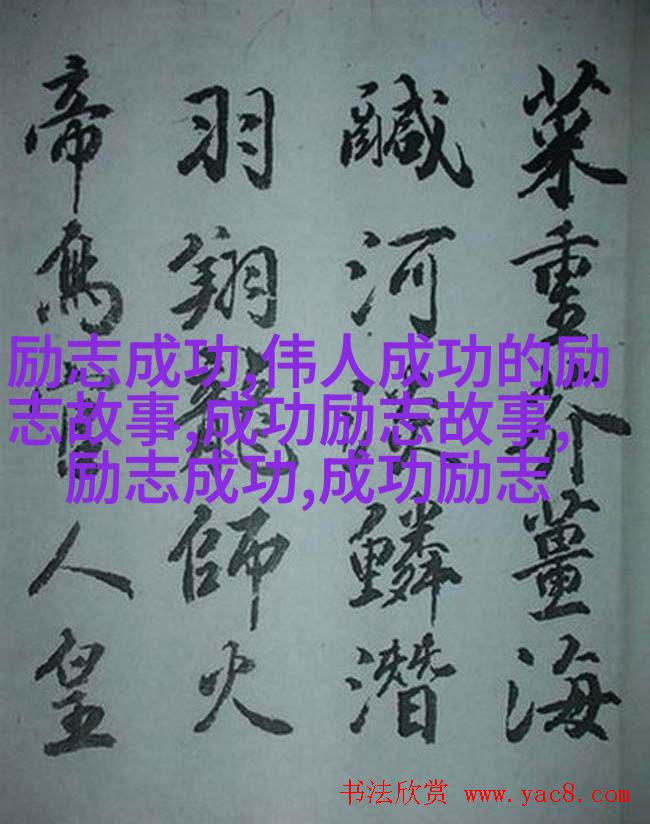 菜重芥薑海
鹹河淡鱗潛
羽翔龍師火
帝鳥官人皇
励志成功,伟人成功的励
志故事,成功励志故事,
励志成功,成功励志
书法欣赏 www.yac8.com